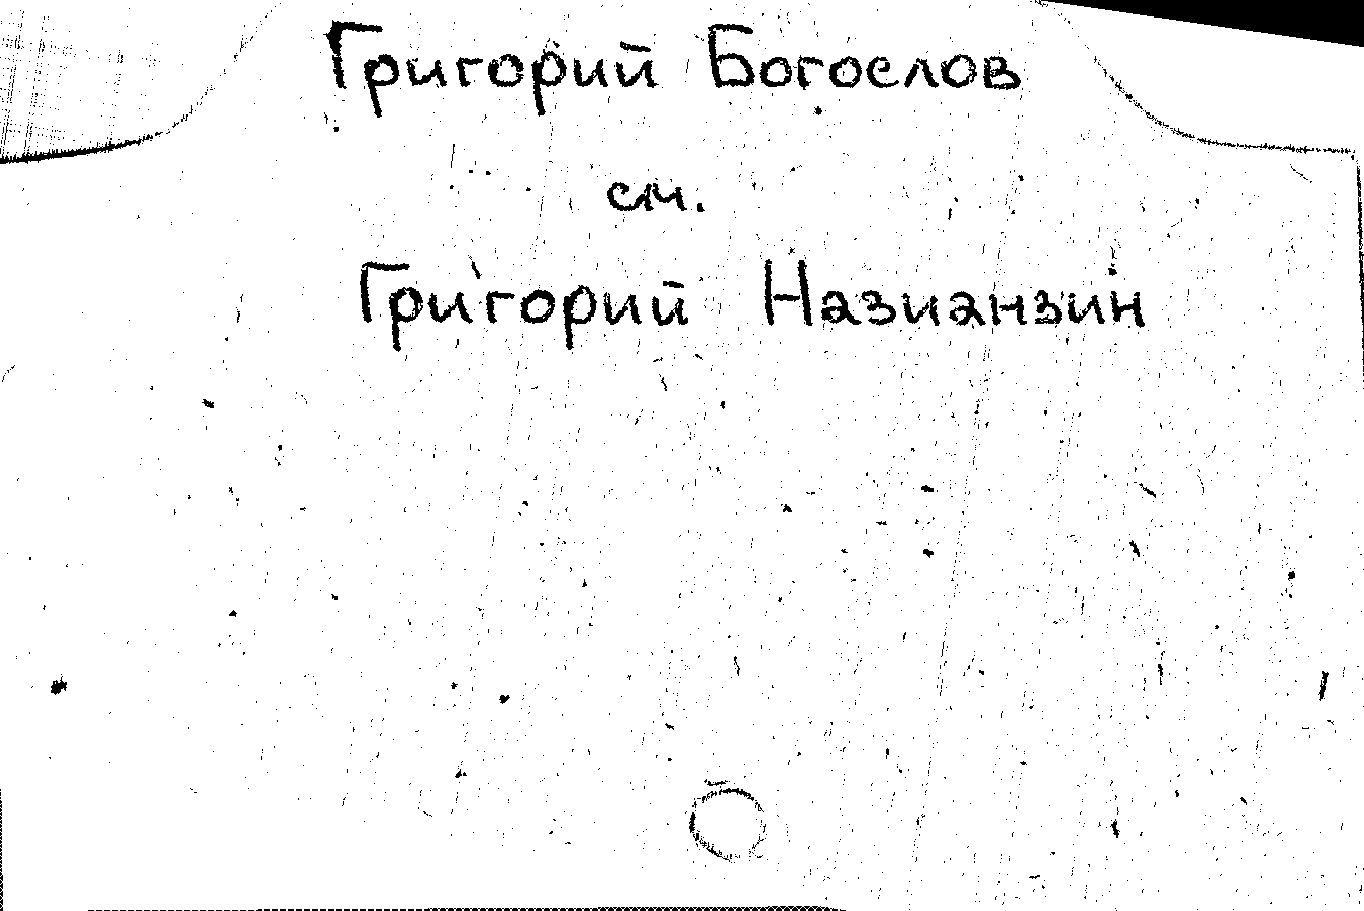 Григорий Богослов
см.
Григорий Назианзин